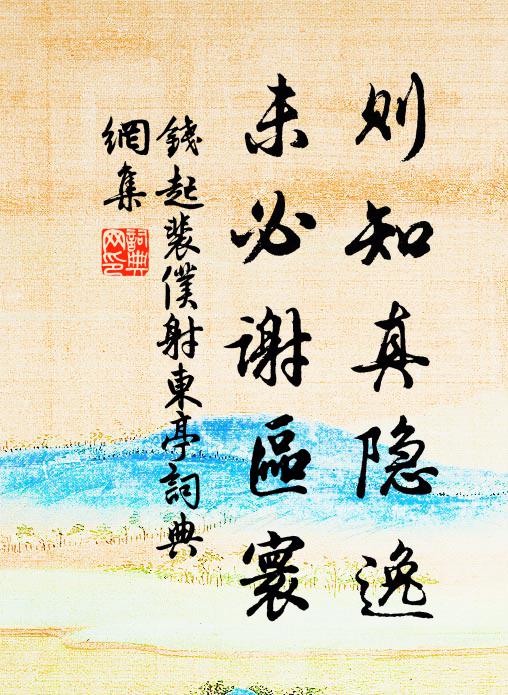 则知真隐逸
未必谢區寰
錢起裴僕射東亭詞典
網集
詞典
网印